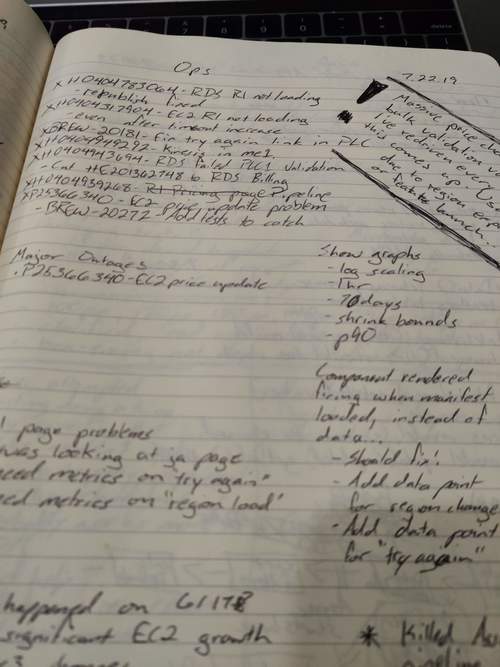 Ops
7.22.19
x H0404783064 - RDS RI not loading
- republish fixed
x H0404317904 - EC2 RI not loading
- even after timeout increase
x BREW-20181 - Fix try again link in PLC
x H0404949292 - Kinesis in me1
x H0404943694 - RDS Failed PLC1 Validation
- Cut HE201362748 to RDS Billing
x H0404939268 - RI Pricing page Pipeline
x P25366340 - EC2 price update problem
- BREW-20272 - Add tests to catch
Massive price change
bulk validation
I've redriven every
this comes up. Us
due to region expa
or feature launch.
Major Outages
. P25366340 - EC2 price update
Show graphs
- log scaling
- 1hr
- 70days
- shrink bounds
- p90
Component rendered
firing when manifest
loaded, instead of
data...
- Should fix!
- Add data point
for region change
- Add data point
for "try again"
page problems
was looking at ja page
metrics on "try again"
metrics on "region load"
happened on 6/17
significant EC2 growth
* Killed